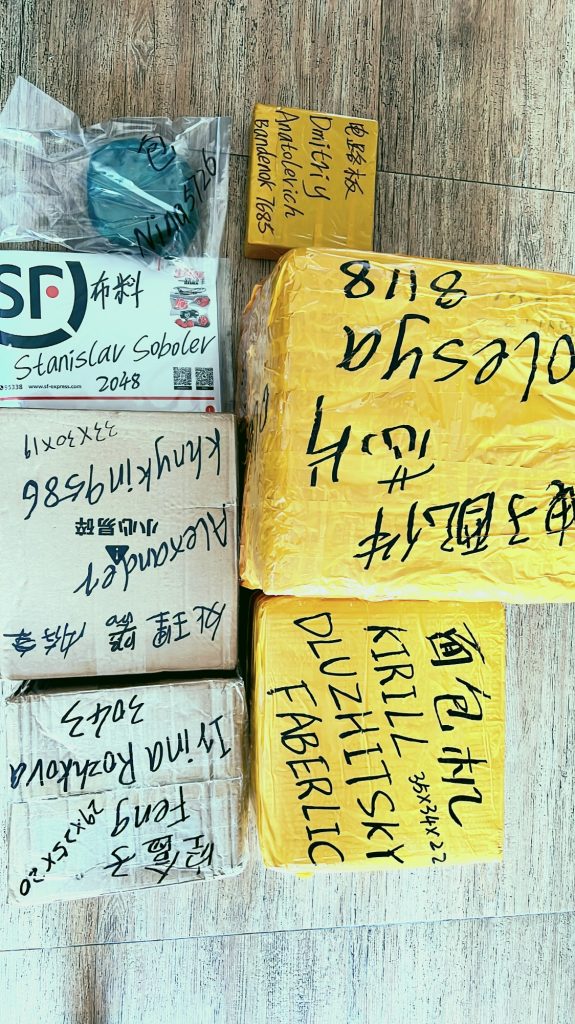 包
Nina5726
电路板
Dmitriy
Anatolevich
Bandenok 7685
SF
布料
Stanislav Soboler
2048
95338 www.sf-express.com
电子配件
芯片
olesya
8118
处理器
Alexander
小心易碎
khnykin9586
33X30X19
空盒子
Feng
29X25X20
Irina Rozhkova
3043
面包机
35X34X22
KIRILL
DLUZHITSKY
FABERLIC